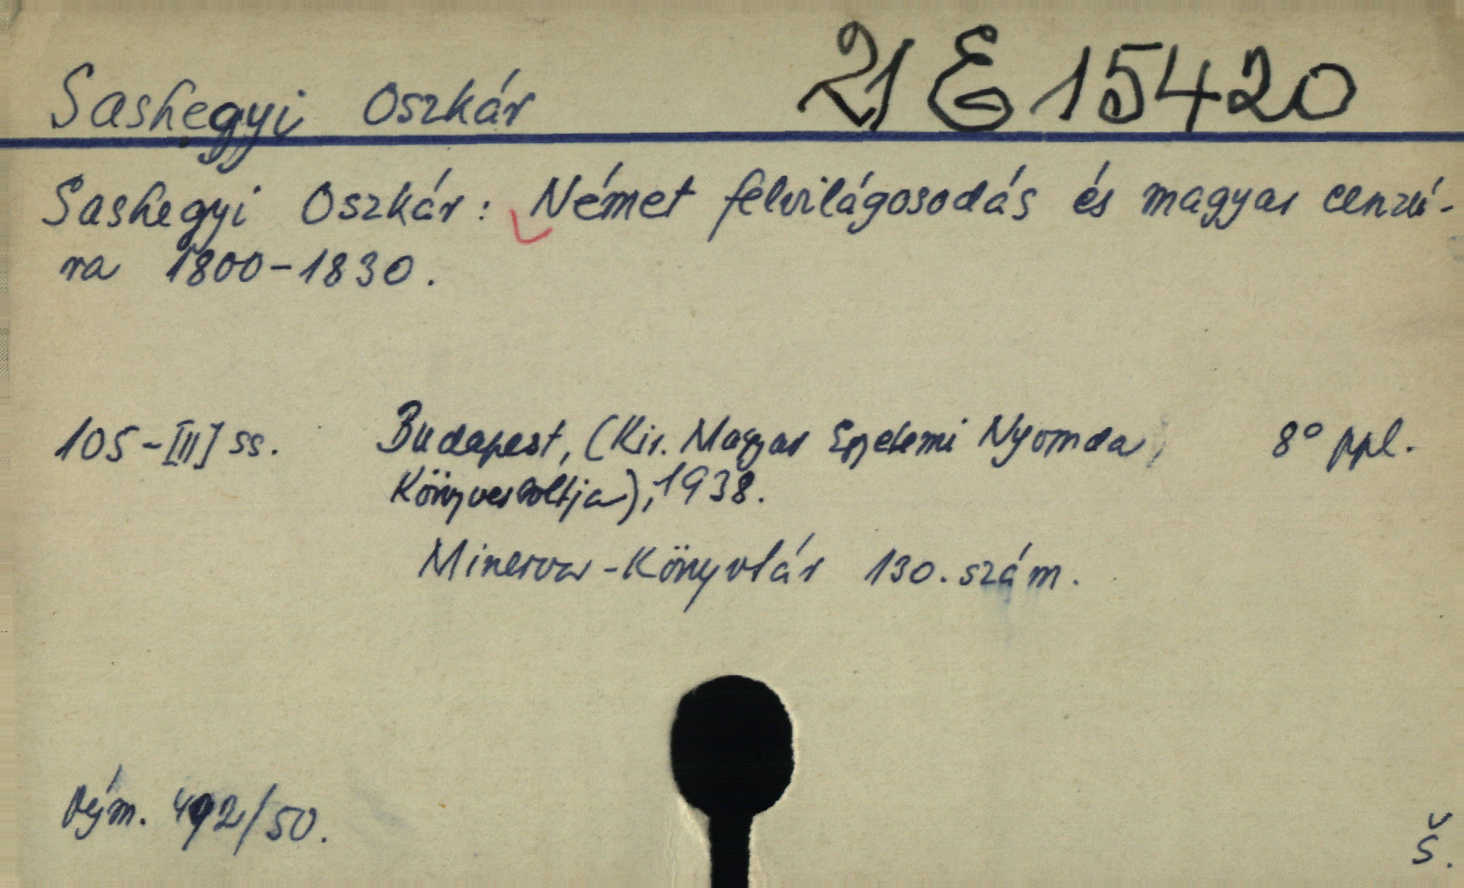 Sashegyi Oszkár 21 E 15420
Sashegyi Oszkár: Német felvilágosodás és magyar cenzú-
ra 1800-1830.
105-[III] ss. Budapest, (Kir. Magyar Egyetemi Nyomda 8° ppl.
Könyvesboltja), 1938.
Minerva-Könyvtár 130. szám.
Vým. 492/50.
Š.